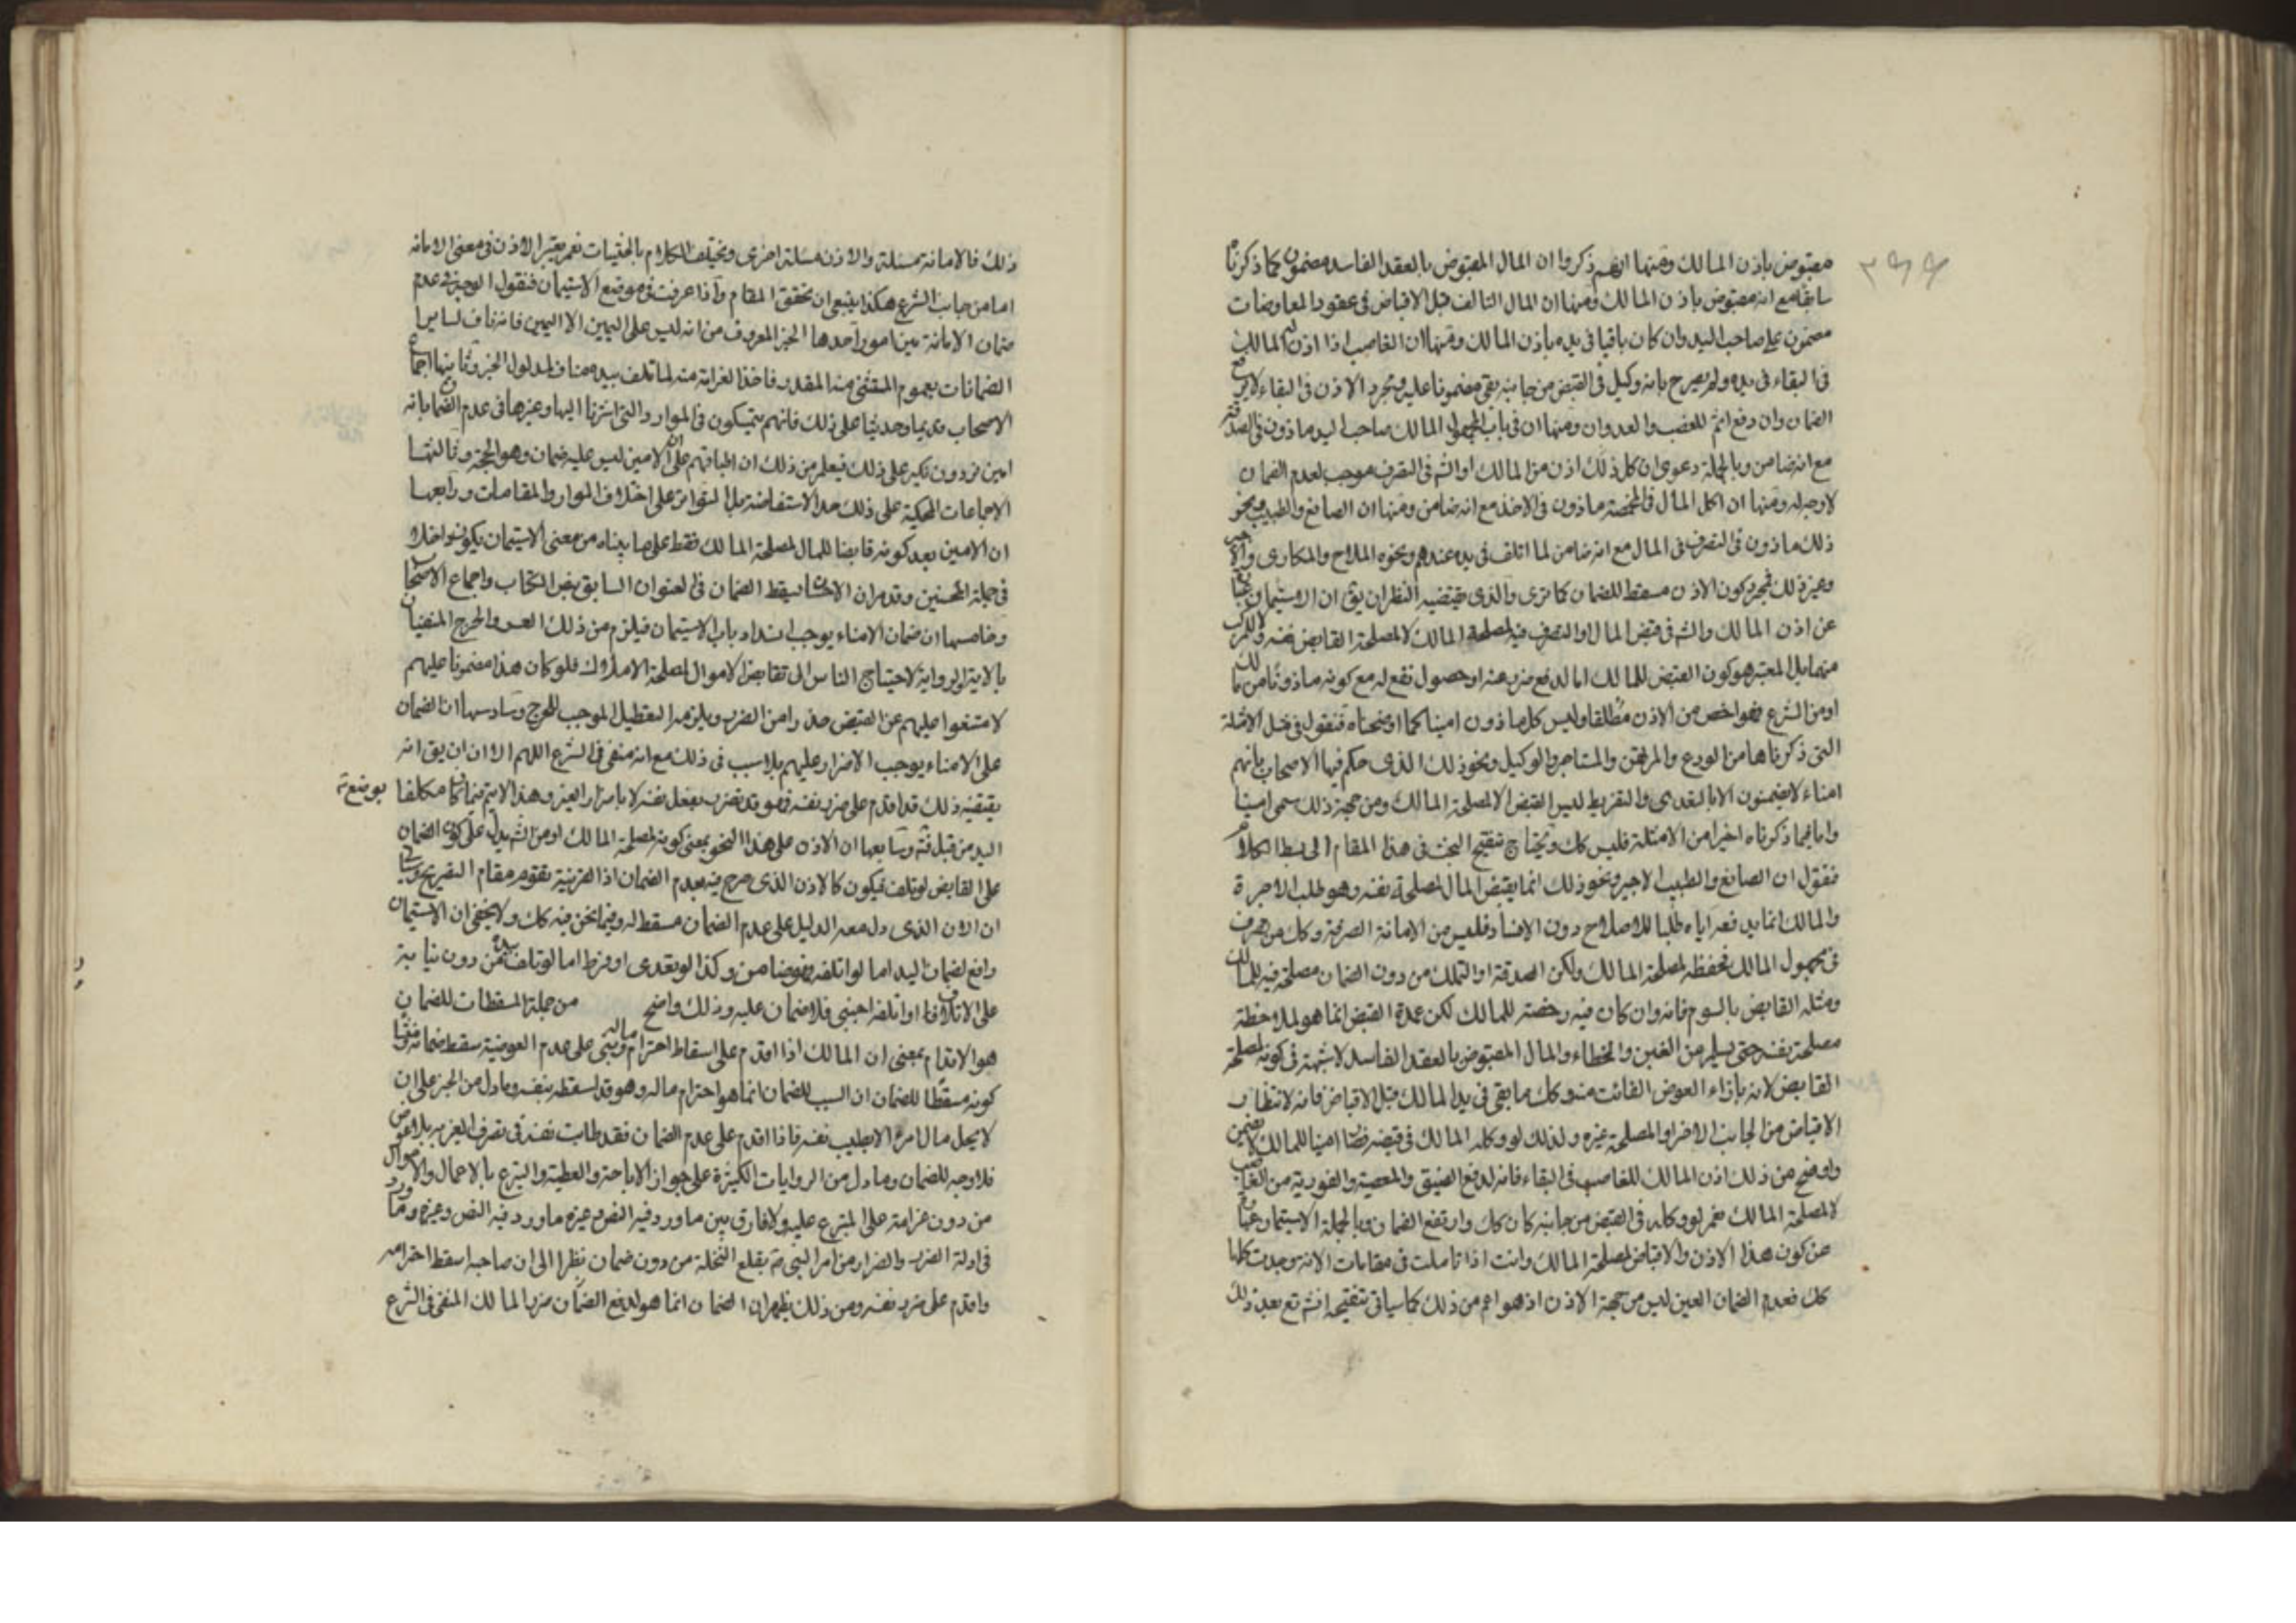 ٣٩٩
مقبوض باذن المالك ومنها انهم ذكروا ان المال المقبوض بالعقد الفاسد مضمون كما ذكرنا
سابقا مع انه مقبوض باذن المالك ومنها ان المال التالف قبل الاقباض في عقود المعاوضات
مضمون على صاحب اليد وان كان باقيا في يده باذن المالك ومنها ان الغاصب اذا اذن له المالك
في البقاء في يده ولم يصرح بانه وكيل في القبض من جانبه بقي مضمونا عليه ومجرد الاذن في البقاء لا يرفع
الضمان وان دفع اثم الغصب والعدوان ومنها ان في باب المجهول المالك صاحب اليد ماذون في الصدقة
مع انه ضامن وبالجملة دعوى ان كل ذلك اذن من المالك او الشرع في التصرف موجب لعدم الضمان
لا وجه له ومنها ان اكل المال في المخمصة ماذون في الاخذ مع انه ضامن ومنها ان الصانع والطبيب ونحو
ذلك ماذون في التصرف في المال مع انه ضامن لما اتلف في يده عندهم ونحوه الملاح والمكاري والاجير
وغير ذلك فمجرد كون الاذن مسقط للضمان كما ترى والذي يقتضيه النظر ان يق ان الاستيمان عبارة
عن اذن المالك والشرع في قبض المال او التصرف فيه لمصلحة المالك لا لمصلحة القابض نفسه وللمركب
منهما بل المعتبر هو كون القبض للمالك اما لدفع ضرر عنه او حصول نفع له مع كونه ماذونا من المالك
او من الشرع فهو اخص من الاذن مطلقا وليس كل ماذون امينا كما اوضحناه فنقول في مثل الامثلة
التي ذكرناها من الودع والمرتهن والمستاجر والوكيل ونحو ذلك الذي حكم فيها الاصحاب بانهم
امناء لا يضمنون الا بالتعدي والتفريط ليس القبض الا لمصلحة المالك ومن جهة ذلك سمي امينا
واما فيما ذكرناه اخيرا من الامثلة فليس كك ويحتاج تنقيح البحث في هذا المقام الى بسط الكلام
فنقول ان الصانع والطبيب والاجير ونحو ذلك انما يقبض المال لمصلحة نفسه وهو طلب الاجرة
والمالك انما يدفعه اياه طلبا للاصلاح دون الافساد فليس من الامانة الصرفة وكك من صرف
في مجهول المالك فحفظه لمصلحة المالك ولكن الصدقة او التملك من دون الضمان مصلحة فيه للمالك
ومثله القابض بالسوم فانه وان كان فيه رخصة للمالك لكن عمدة القبض انما هو لملاحظة
مصلحة نفسه حتى يسلم من الغبن والخطاء والمال المقبوض بالعقد الفاسد لا شبهة في كونه لمصلحة
القابض لانه بازاء العوض الفائت منه وكك ما بقي في يد المالك قبل الاقباض فانه لانتظار
الاقباض من الجانب الاخر او المصلحة غيره ولذلك لو وكله المالك في قبضه فصار امينا للمالك لا يضمن
واوضح من ذلك اذن المالك للغاصب في البقاء فانه لدفع الضيق والمعصية والفورية من الغاصب
لا لمصلحة المالك نعم لو وكله في القبض من جانبه كان كك وارتفع الضمان وبالجملة الاستيمان عبارة
عن كون هذا الاذن والاقباض لمصلحة المالك وانت اذا تاملت في مقامات الامانة وجدت كلها
كك فعدم الضمان العين ليس من جهة الاذن اذ هو اعم من ذلك كما سياتي تنقيحه انشه تع بعد ذلك
ذلك فالامانة مسئلة والاذن مسئلة اخرى ويختلف الكلام بالحيثيات نعم يعتبر الاذن في معنى الامانة
اما من جانب الشرع هكذا ينبغي ان يحقق المقام واذا عرفت موضع الاستيمان فنقول الوجه في عدم
ضمان الامانة بين امور احدها الخبر المعروف من انه ليس على اليمين الا اليمين فانه ناف لساير
الضمانات بعموم المقتضي منه المقدر فاخذ الغرامة منه لما تلف بيده مناف لمدلول الخبر وثانيها اجماع
الاصحاب قديما وحديثا على ذلك فانهم يتمسكون في الموارد التي اشرنا اليها وغيرها في عدم الضمان بانه
امين من دون نكير على ذلك فيعلم من ذلك ان اطباقهم على ان الامين ليس عليه ضمان وهو الحجة وثالثها
الاجماعات المحكية على ذلك حد الاستفاضة بل التواتر على اختلاف الموارد والمقامات ورابعها
ان الامين بعد كونه قابضا للمال لمصلحة المالك فقط على ما بيناه من معنى الاستيمان يكون داخلا
في جملة المحسنين وقد مر ان الاحسان يسقط الضمان في العنوان السابق بنص الكتاب واجماع الاصحاب
وخامسها ان ضمان الامناء يوجب انسداد باب الاستيمان فيلزم من ذلك العسر والحرج المنفيان
بالاية والرواية لاحتياج الناس الى تقابض الاموال لمصلحة الاملاك فلو كان هذا مضمونا عليهم
لامتنعوا عليهم عن القبض حذرا من الضرر ويلزم التعطيل الموجب للحرج وسادسها ان الضمان
على الامناء يوجب الاضرار عليهم بلا سبب في ذلك مع انه منفي في الشرع اللهم الا ان يق انه
بقبضه ذلك قد اقدم على ضرر نفسه فهو قد تضرر بفعل نفسه لا باضرار الغير وهذا لا يتم فيما كان مكلفا بوضع
اليد من قبل فته وسابعها ان الاذن على هذا النحو بمعنى كونه لمصلحة المالك او من الشرع يدل على كون الضمان
على القابض لو تلف فيكون كالاذن الذي صرح فيه بعدم الضمان اذ القرينة تقوم مقام التصريح وسياتي
ان الاذن الذي دل معه الدليل على عدم الضمان مسقط له وفيما نحن فيه كك ولا يخفى ان الاستيمان
رافع لضمان اليد اما لو اتلفه فهو ضامن وكذا لو تعدى او فرط اما لو تلف بيده من دون نيابة
على الاتلاف او اتلفه اجنبي فلا ضمان عليه وذلك واضح من جملة المسقطات للضمان
هو الاقدام بمعنى ان المالك اذا اقدم على اسقاط احترام ماله وبنى على عدم العوضية سقط ضمانه
كونه مسقطا للضمان ان السبب للضمان انما هو احترام ماله وهو قد اسقطه بنفسه وما دل من الخبر على ان
لا يحل مال امرء الا بطيب نفسه فاذا اقدم على عدم الضمان فقد طابت نفسه في تصرف الغير به بلا عوض
فلا وجه للضمان وما دل من الروايات الكثيرة على جواز الاباحة والعطية والتبرع بالاعمال والاموال
من دون غرامة على المتبرع عليه ولا فارق بين ما ورد فيه النص وغيره ما ورد فيه النص وغيره وما ورد
في ادلة الضرر والضرار من امر النبي ص بقلع النخلة من دون ضمان نظرا الى ان صاحبه اسقط احترامه
واقدم على ضرر نفسه ومن ذلك يظهر ان الضمان انما هو لدفع الضمان ضرر المالك المنفي في الشرع